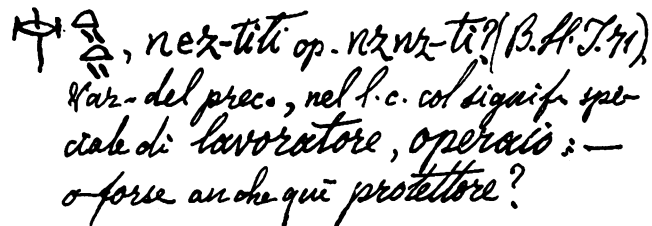 , nez-titi op. nznz-ti? (B.H.T. 71)
Var. del prec., nel l.c. col signif. spe-
ciale di lavoratore, operaio : —
o forse anche qui protettore?